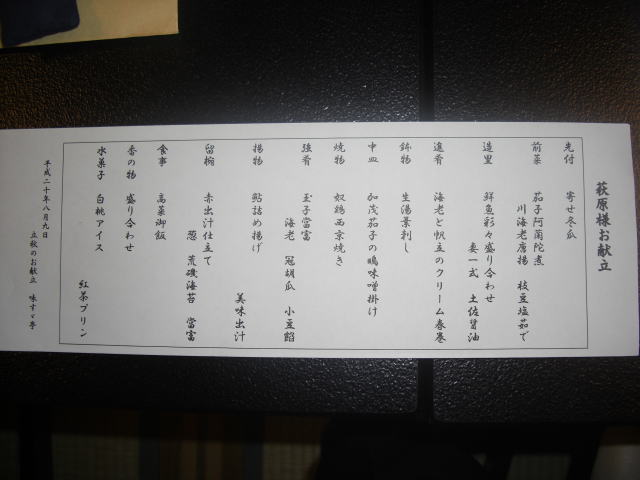 萩原様お献立
先付 寄せ冬瓜
前菜 茄子阿蘭陀煮
川海老唐揚 枝豆塩茹で
造里 鮮魚彩々盛り合わせ
妻一式 土佐醤油
進肴 海老と帆立のクリーム春巻
鉢物 生湯葉刺し
中皿 加茂茄子の鴫味噌掛け
焼物 奴鶏西京焼き
強肴 玉子當富
海老 冠胡瓜 小豆餡
揚物 鮎詰め揚げ
美味出汁
留椀 赤出汁仕立て
葱 荒磯海苔 當富
食事 高菜御飯
香の物 盛り合わせ
水菓子 白桃アイス
紅茶プリン
平成二十年八月九日
立秋のお献立 味すゞ亭